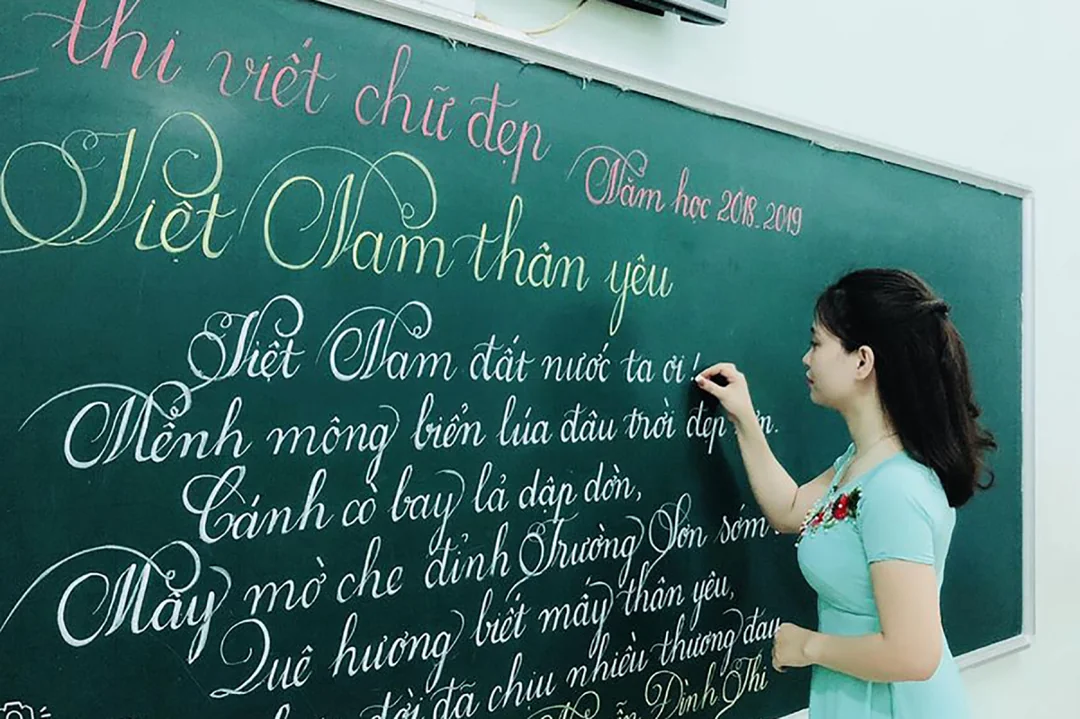 thi viết chữ đẹp
Năm học 2018-2019
Việt Nam thân yêu
Việt Nam đất nước ta ơi!
Mênh mông biển lúa đâu trời đẹp
Cánh cò bay lả dập dờn,
Mây mờ che đỉnh Trường Sơn sớm
Quê hương biết mấy thân yêu,
đời đã chịu nhiều thương đau
Đình Thi